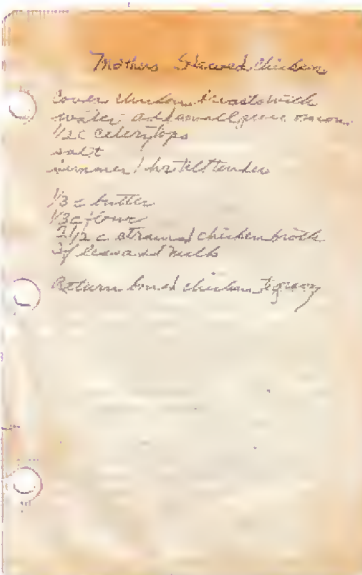 Mothers Stewed Chicken
Cover chicken breasts with
water add small piece onion
1/2 c celery tops
salt
simmer 1 hr till tender
1/3 c butter
1/3 c flour
2 1/2 c strained chicken broth
if less add milk
Return boned chicken to gravy